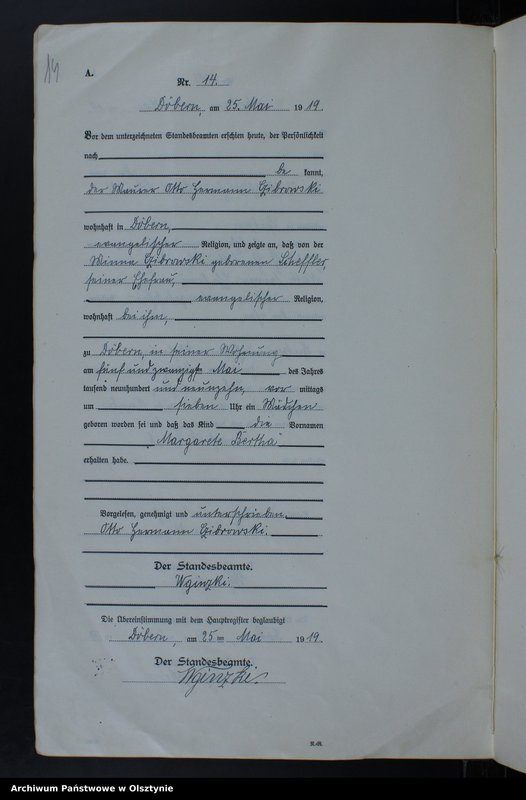 14
A.
Nr. 14.
Döbern, am 25. Mai 1919.
Vor dem unterzeichneten Standesbeamten erschien heute, der Persönlichkeit
nach
be kannt,
der Maurer Otto Hermann Czibrowski
wohnhaft in Döbern,
evangelischer Religion, und zeigte an, daß von der
Minna Czibrowski geborenen Scheffler,
seiner Ehefrau,
evangelischer Religion,
wohnhaft bei ihm,
zu Döbern, in seiner Wohnung
am fünf und zwanzigsten Mai des Jahres
tausend neunhundert und neunzehn, vor mittags
um sieben Uhr ein Mädchen
geboren worden sei und daß das Kind die Vornamen
Margarete Bertha
erhalten habe.
Vorgelesen, genehmigt und unterschrieben.
Otto Hermann Czibrowski.
Der Standesbeamte.
Die Übereinstimmung mit dem Hauptregister beglaubigt
Döbern, am 25ten Mai 1919.
Der Standesbeamte.
K.-R.
Archiwum Państwowe w Olsztynie